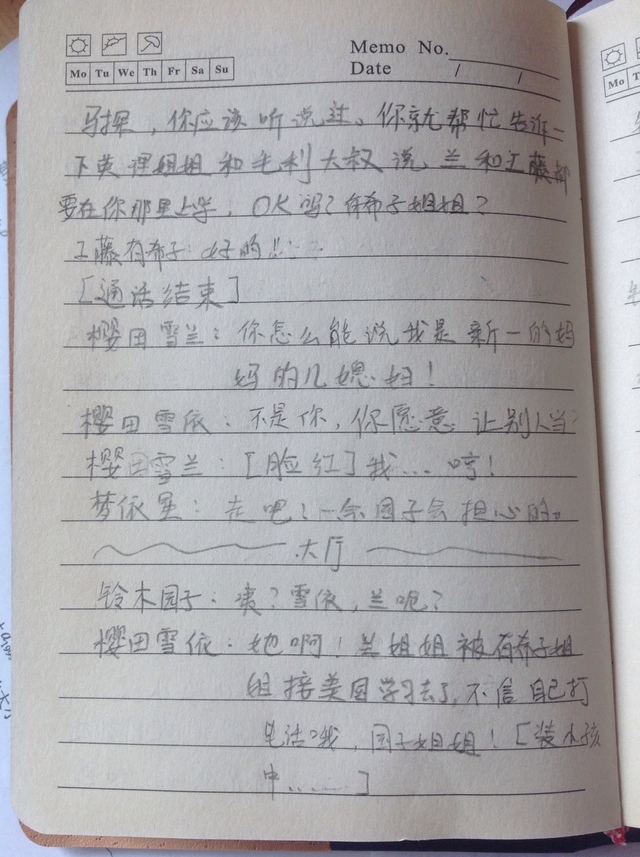 Memo No.
Mo Tu We Th Fr Sa Su
Date / /
探,你应该听说过。你就帮忙告诉一
下英理姐姐和毛利大叔说,兰和工藤都
要在你那里上学,OK吗?有希子姐姐?
工藤有希子:好的!!……
[通话结束]
樱田雪兰:你怎么能说我是新一的妈
妈的儿媳妇!
樱田雪依:不是你,你愿意让别人当?
樱田雪兰:[脸红]我...哼!
梦依星:走吧!一会园子会担心的。
大厅
铃木园子:咦?雪依,兰呢?
樱田雪依:她啊!兰姐姐被有希子姐
姐接美国学习去了,不信自己打
电话哦,园子姐姐![装小孩
中......]
Mo T